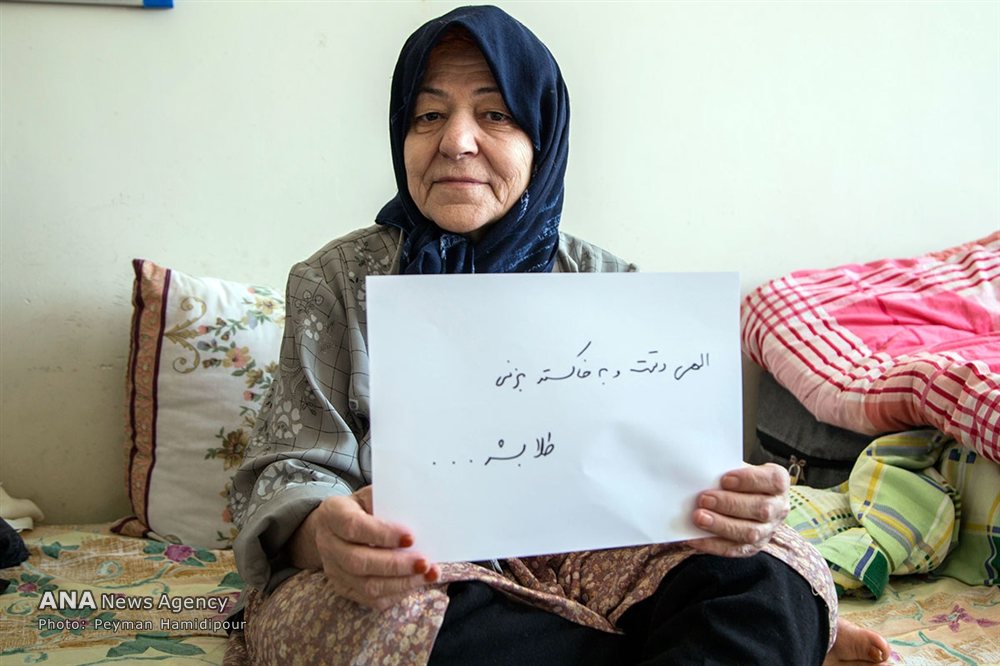 الهی دستت و به خاکستر بزنی
طلا بشه . . .
ANA News Agency
Photo: Peyman Hamidipour